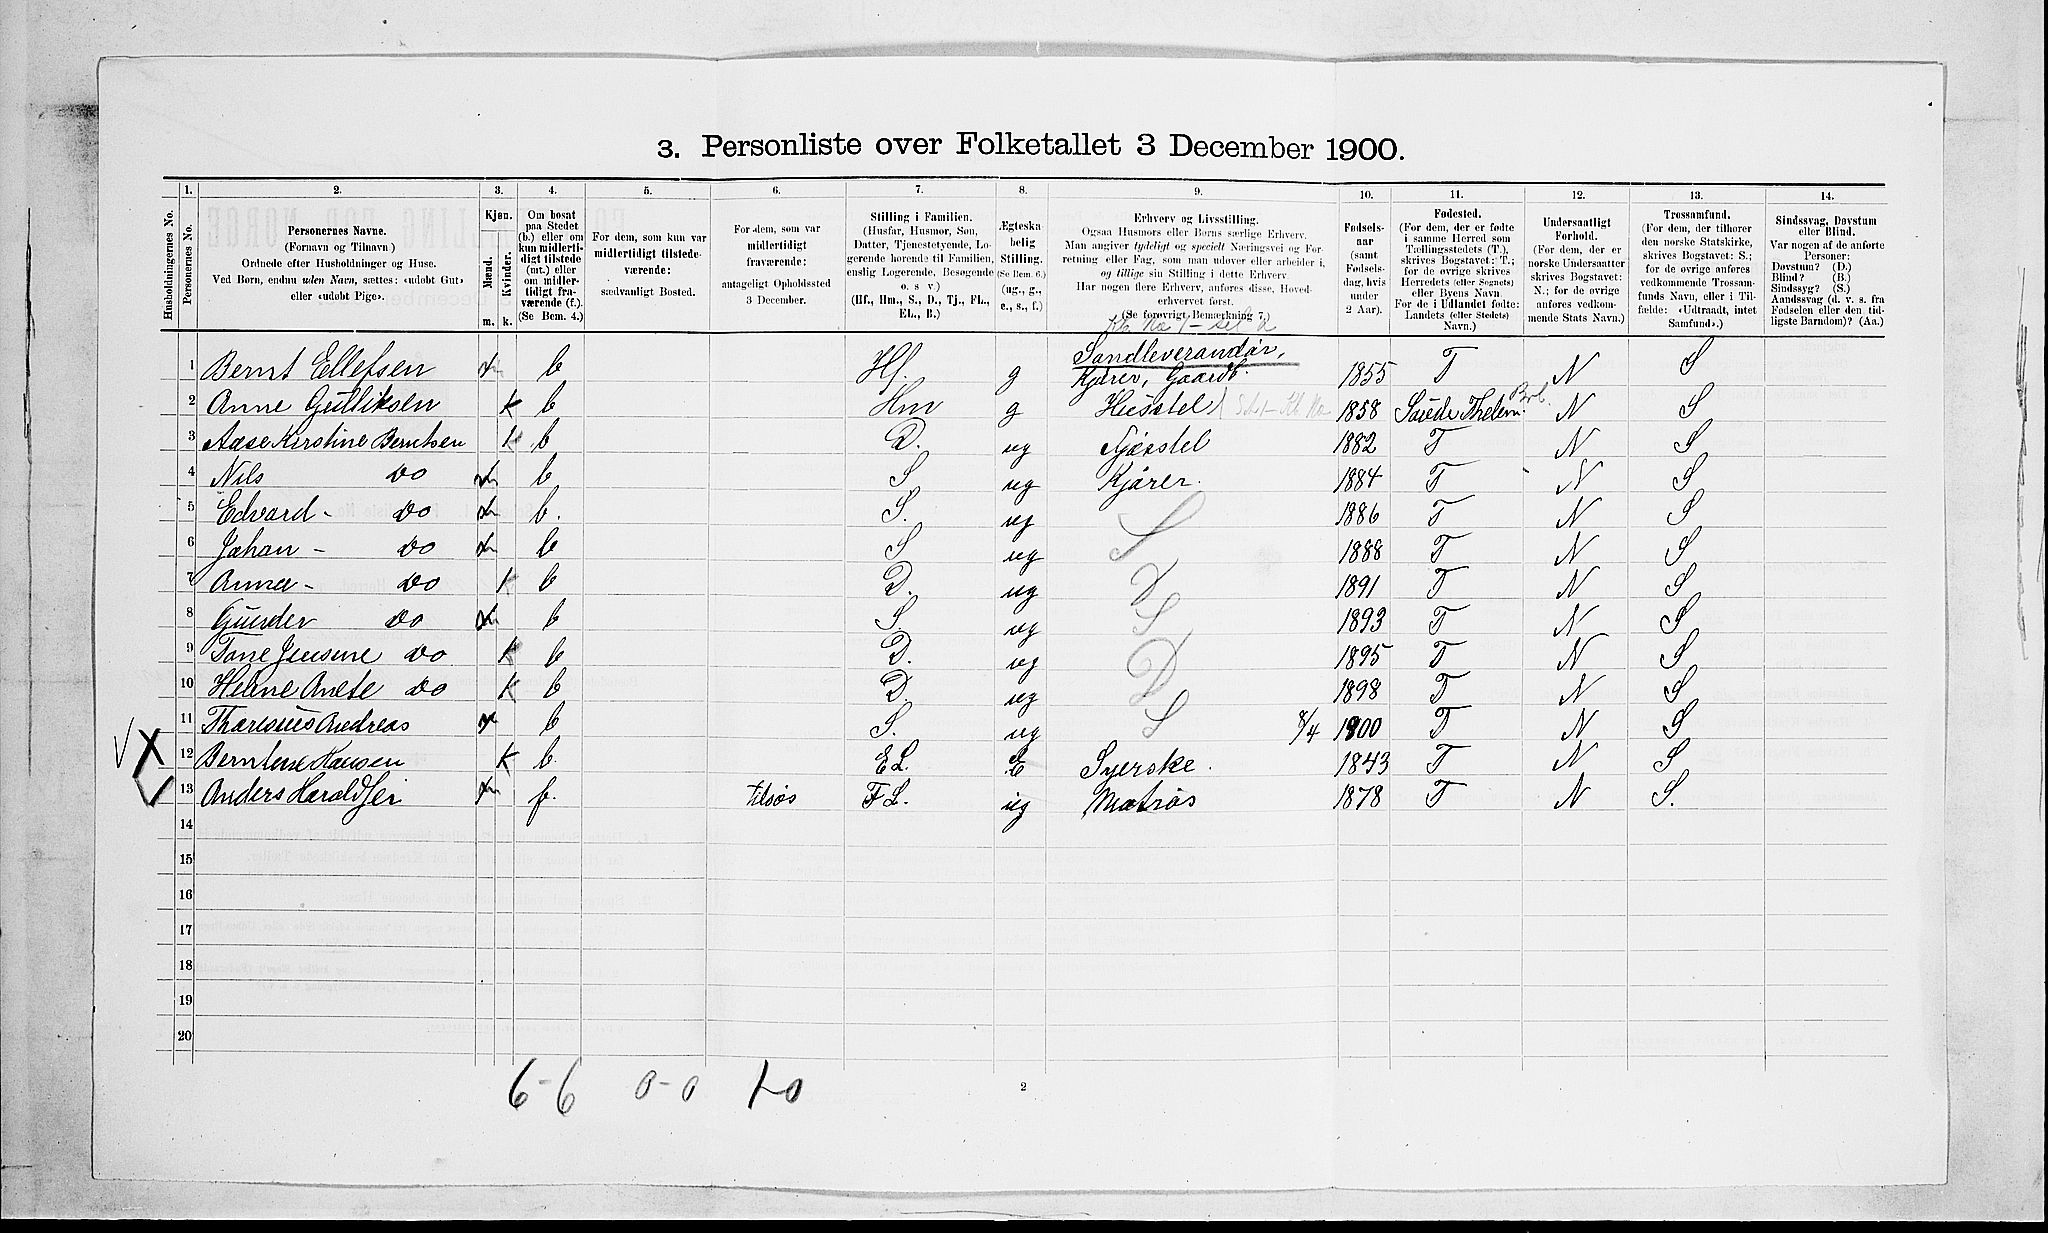 3. Personliste over Folketallet 3 December 1900.
1. 2. 3. 4. 5. 6. 7. 8. 9. 10. 11. 12. 13. 14.
Husholdningernes No.
Personernes No.
Personernes Navne.
(Fornavn og Tilnavn.)
Ordnede efter Husholdninger og Huse.
Ved Børn, endnu uden Navn, sættes: «udøbt Gut»
eller «udøbt Pige».
Kjøn.
Mænd.
Kvinder.
m. k.
Om bosat
paa Stedet
(b.) eller om
kun midlerti-
digt tilstede
(mt.) eller
om midler-
tidigt fra-
værende (f.).
(Se Bem. 4.)
For dem, som kun var
midlertidigt tilstede-
værende:
sædvanligt Bosted.
For dem, som var
midlertidigt
fraværende:
antageligt Opholdssted
3 December.
Stilling i Familien.
(Husfar, Husmor, Søn,
Datter, Tjenestetyende, Lo-
gerende hørende til Familien,
enslig Logerende, Besøgende
o. s. v.)
(Hf., Hm., S., D., Tj., FL.,
EL., B.)
Ægteska-
belig
Stilling.
(Se Bem. 6.)
(ug., g.,
e., s., f.)
Erhverv og Livsstilling.
Ogsaa Husmors eller Børns særlige Erhverv.
Man angiver tydeligt og specielt Næringsvei og For-
retning eller Fag, som man udøver eller arbeider i,
og tillige sin Stilling i dette Erhverv.
Har nogen flere Erhverv, anføres disse, Hoved-
erhvervet først.
(Se forøvrigt Bemærkning 7.)
Fødsels-
aar
(samt
Fødsels-
dag, hvis
under
2 Aar).
Fødested.
(For dem, der er fødte
i samme Herred som
Tællingsstedets (T.),
skrives Bogstavet: T.;
for de øvrige skrives
Herredets (eller Sognets)
eller Byens Navn
For de i Udlandet fødte:
Landets (eller Stedets)
Navn.)
Undersaatligt
Forhold.
(For dem, der er
norske Undersaatter
skrives Bogstavet:
N.; for de øvrige
anføres vedkom-
mende Stats Navn.)
Trossamfund.
(For dem, der tilhører
den norske Statskirke,
skrives Bogstavet: S.;
for de øvrige anføres
vedkommende Trossam-
funds Navn, eller i Til-
fælde: «Udtraadt, intet
Samfund».)
Sindssvag, Døvstum
eller Blind.
Var nogen af de anførte
Personer:
Døvstum? (D.)
Blind? (B.)
Sindssyg? (S.)
Aandssvag (d. v. s. fra
Fødselen eller den tid-
ligste Barndom)? (Aa.)
1 Bernt Ellefsen m b Hf. g Sandleverandør, Kjører, Gaardb. 1855 T N S
2 Anne Gulliksen K b Hm g Husstel 1858 Saude Thelem. Brb. N S
3 Aase Kirstine Berntsen K b D. ug Fjøsstel 1882 T N S
4 Nils Do m b S ug Kjører. 1884 T N S
5 Edvard - Do m b. S. ug S 1886 T N S
6 Johan - Do m b S ug 1888 T N S
7 Anna - Do K b D. ug D 1891 T N S
8 Gunder Do m b S. ug S 1893 T N S
9 Tone Jensine Do K b D. ug D 1895 T N S
10 Helene Anete Do K b D. ug 1898 T N S
11 Thorenius Andreas m b S. ug S 8/4 1900 T N S
12 Berntine Hansen K b. EL. E Syerske. 1843 T N S
13 Anders Haraldsen m f. tilsøs FL. ug Matros 1878 T N S.
14
15
16
17
18
19
20
6-6 0-0 1-0
2